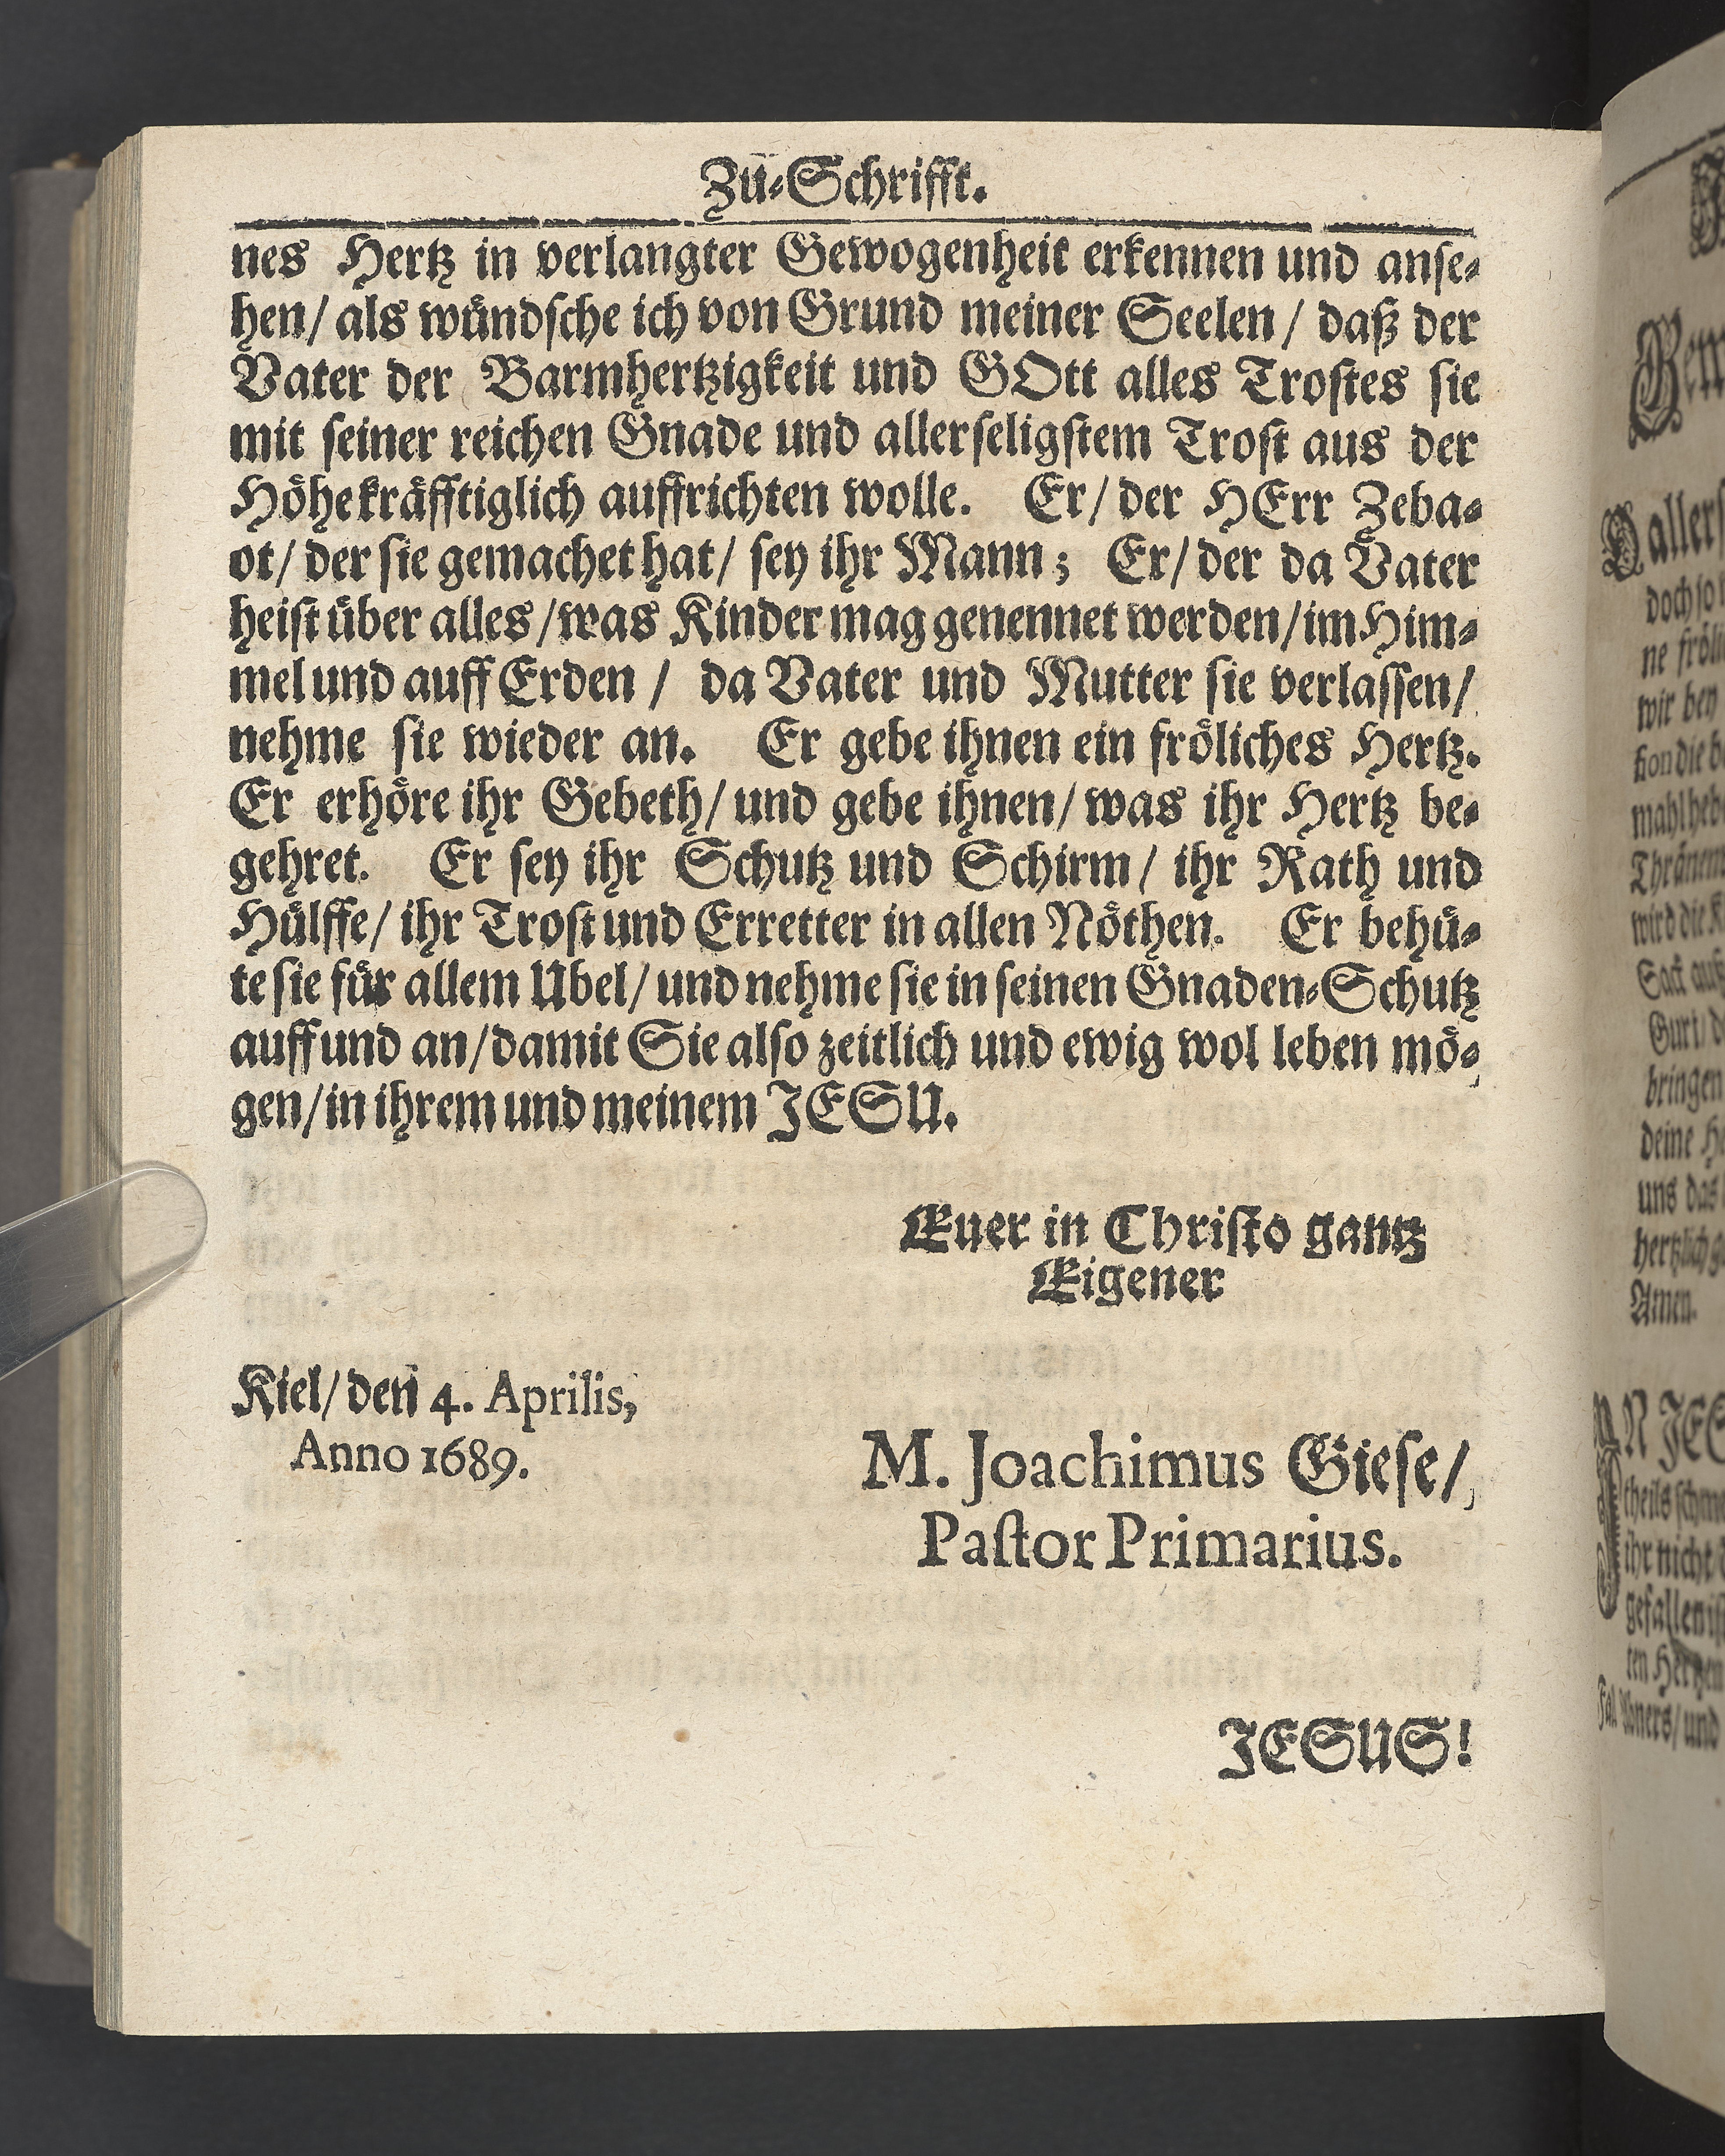 Zu-Schrifft.
nes Hertz in verlangter Gewogenheit erkennen und anse-
hen/ als wündsche ich von Grund meiner Seelen/ daß der
Vater der Barmhertzigkeit und GOtt alles Trostes sie
mit seiner reichen Gnade und allerseligstem Trost aus der
Höhe kräfftiglich auffrichten wolle. Er/ der HErr Zeba-
ot/ der sie gemachet hat/ sey ihr Mann; Er/ der da Vater
heist über alles/ was Kinder mag genennet werden/ im Him-
mel und auff Erden/ da Vater und Mutter sie verlassen/
nehme sie wieder an. Er gebe ihnen ein fröliches Hertz.
Er erhöre ihr Gebeth/ und gebe ihnen/ was ihr Hertz be-
gehret. Er sey ihr Schutz und Schirm/ ihr Rath und
Hülffe/ ihr Trost und Erretter in allen Nöthen. Er behü-
te sie für allem Ubel/ und nehme sie in seinen Gnaden-Schutz
auff und an/ damit Sie also zeitlich und ewig wol leben mö-
gen/ in ihrem und meinem JESU.
Euer in Christo gantz
Eigener
Kiel/ den 4. Aprilis,
Anno 1689.
M. Joachimus Giese/
Pastor Primarius.
JESUS!
allers
doch so
wir bey
bringen
deine
uns das
Amen.
ihr nicht